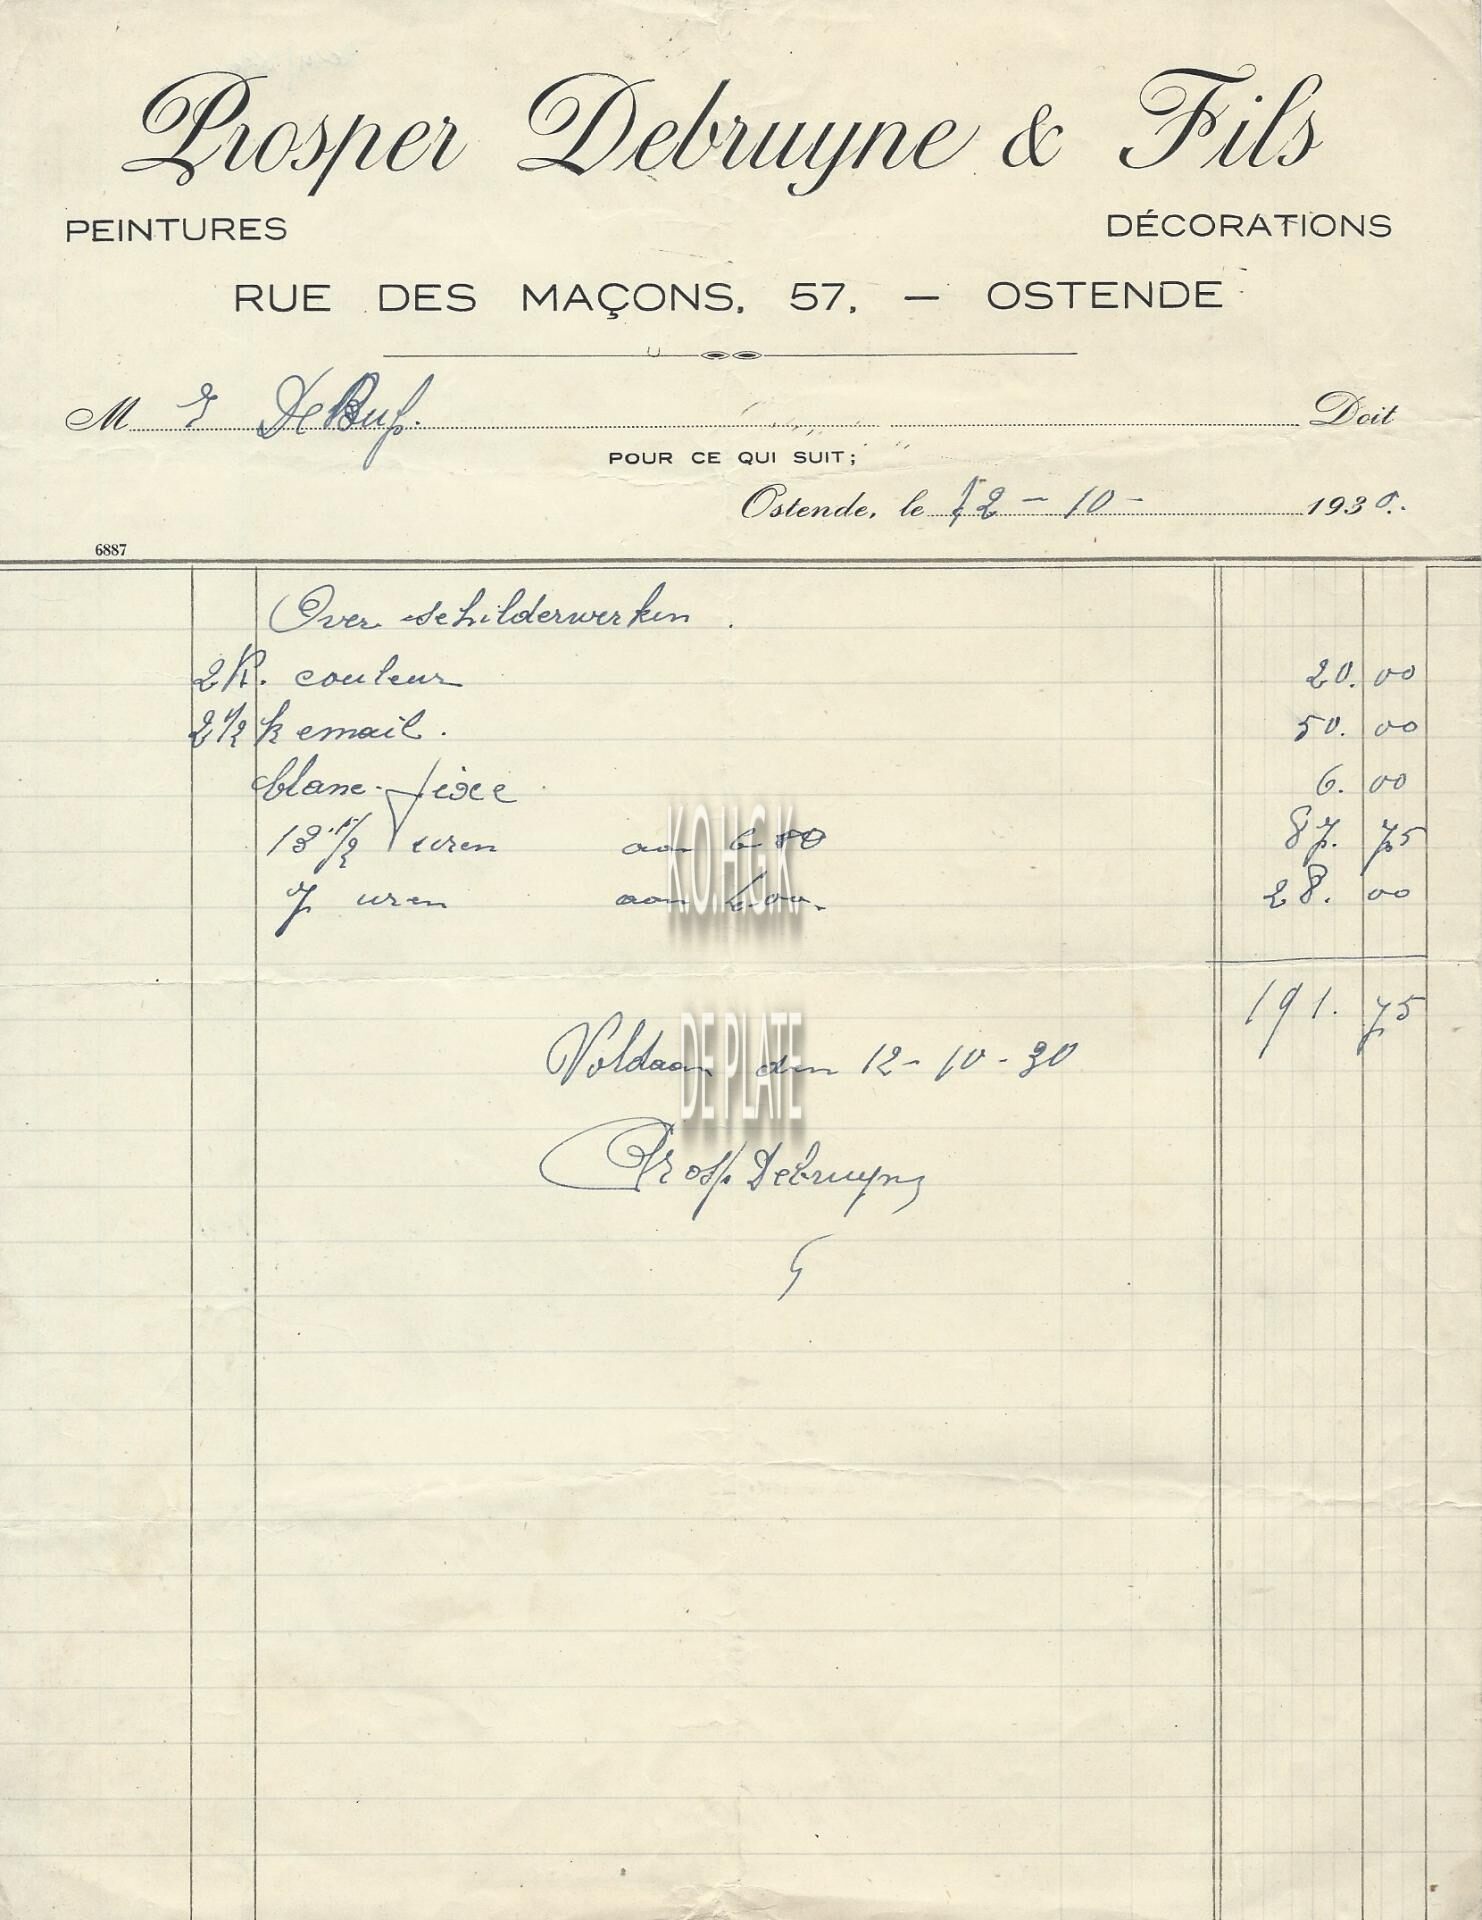 Prosper Debruyne & Fils
PEINTURES DÉCORATIONS
RUE DES MAÇONS, 57, — OSTENDE
M r DeBuf. Doit
POUR CE QUI SUIT;
Ostende, le 12 - 10 - 1930.
6887
Over schilderwerken.
2 K. couleur 20.00
2 1/2 k email. 50.00
blanc-fixe 6.00
13 1/2 uren aan 6 50 87.75
7 uren aan 4.00. 28.00
191.75
K.O.H.G.K.
Voldaan den 12-10-30
DE PLATE
Prosp Debruyne